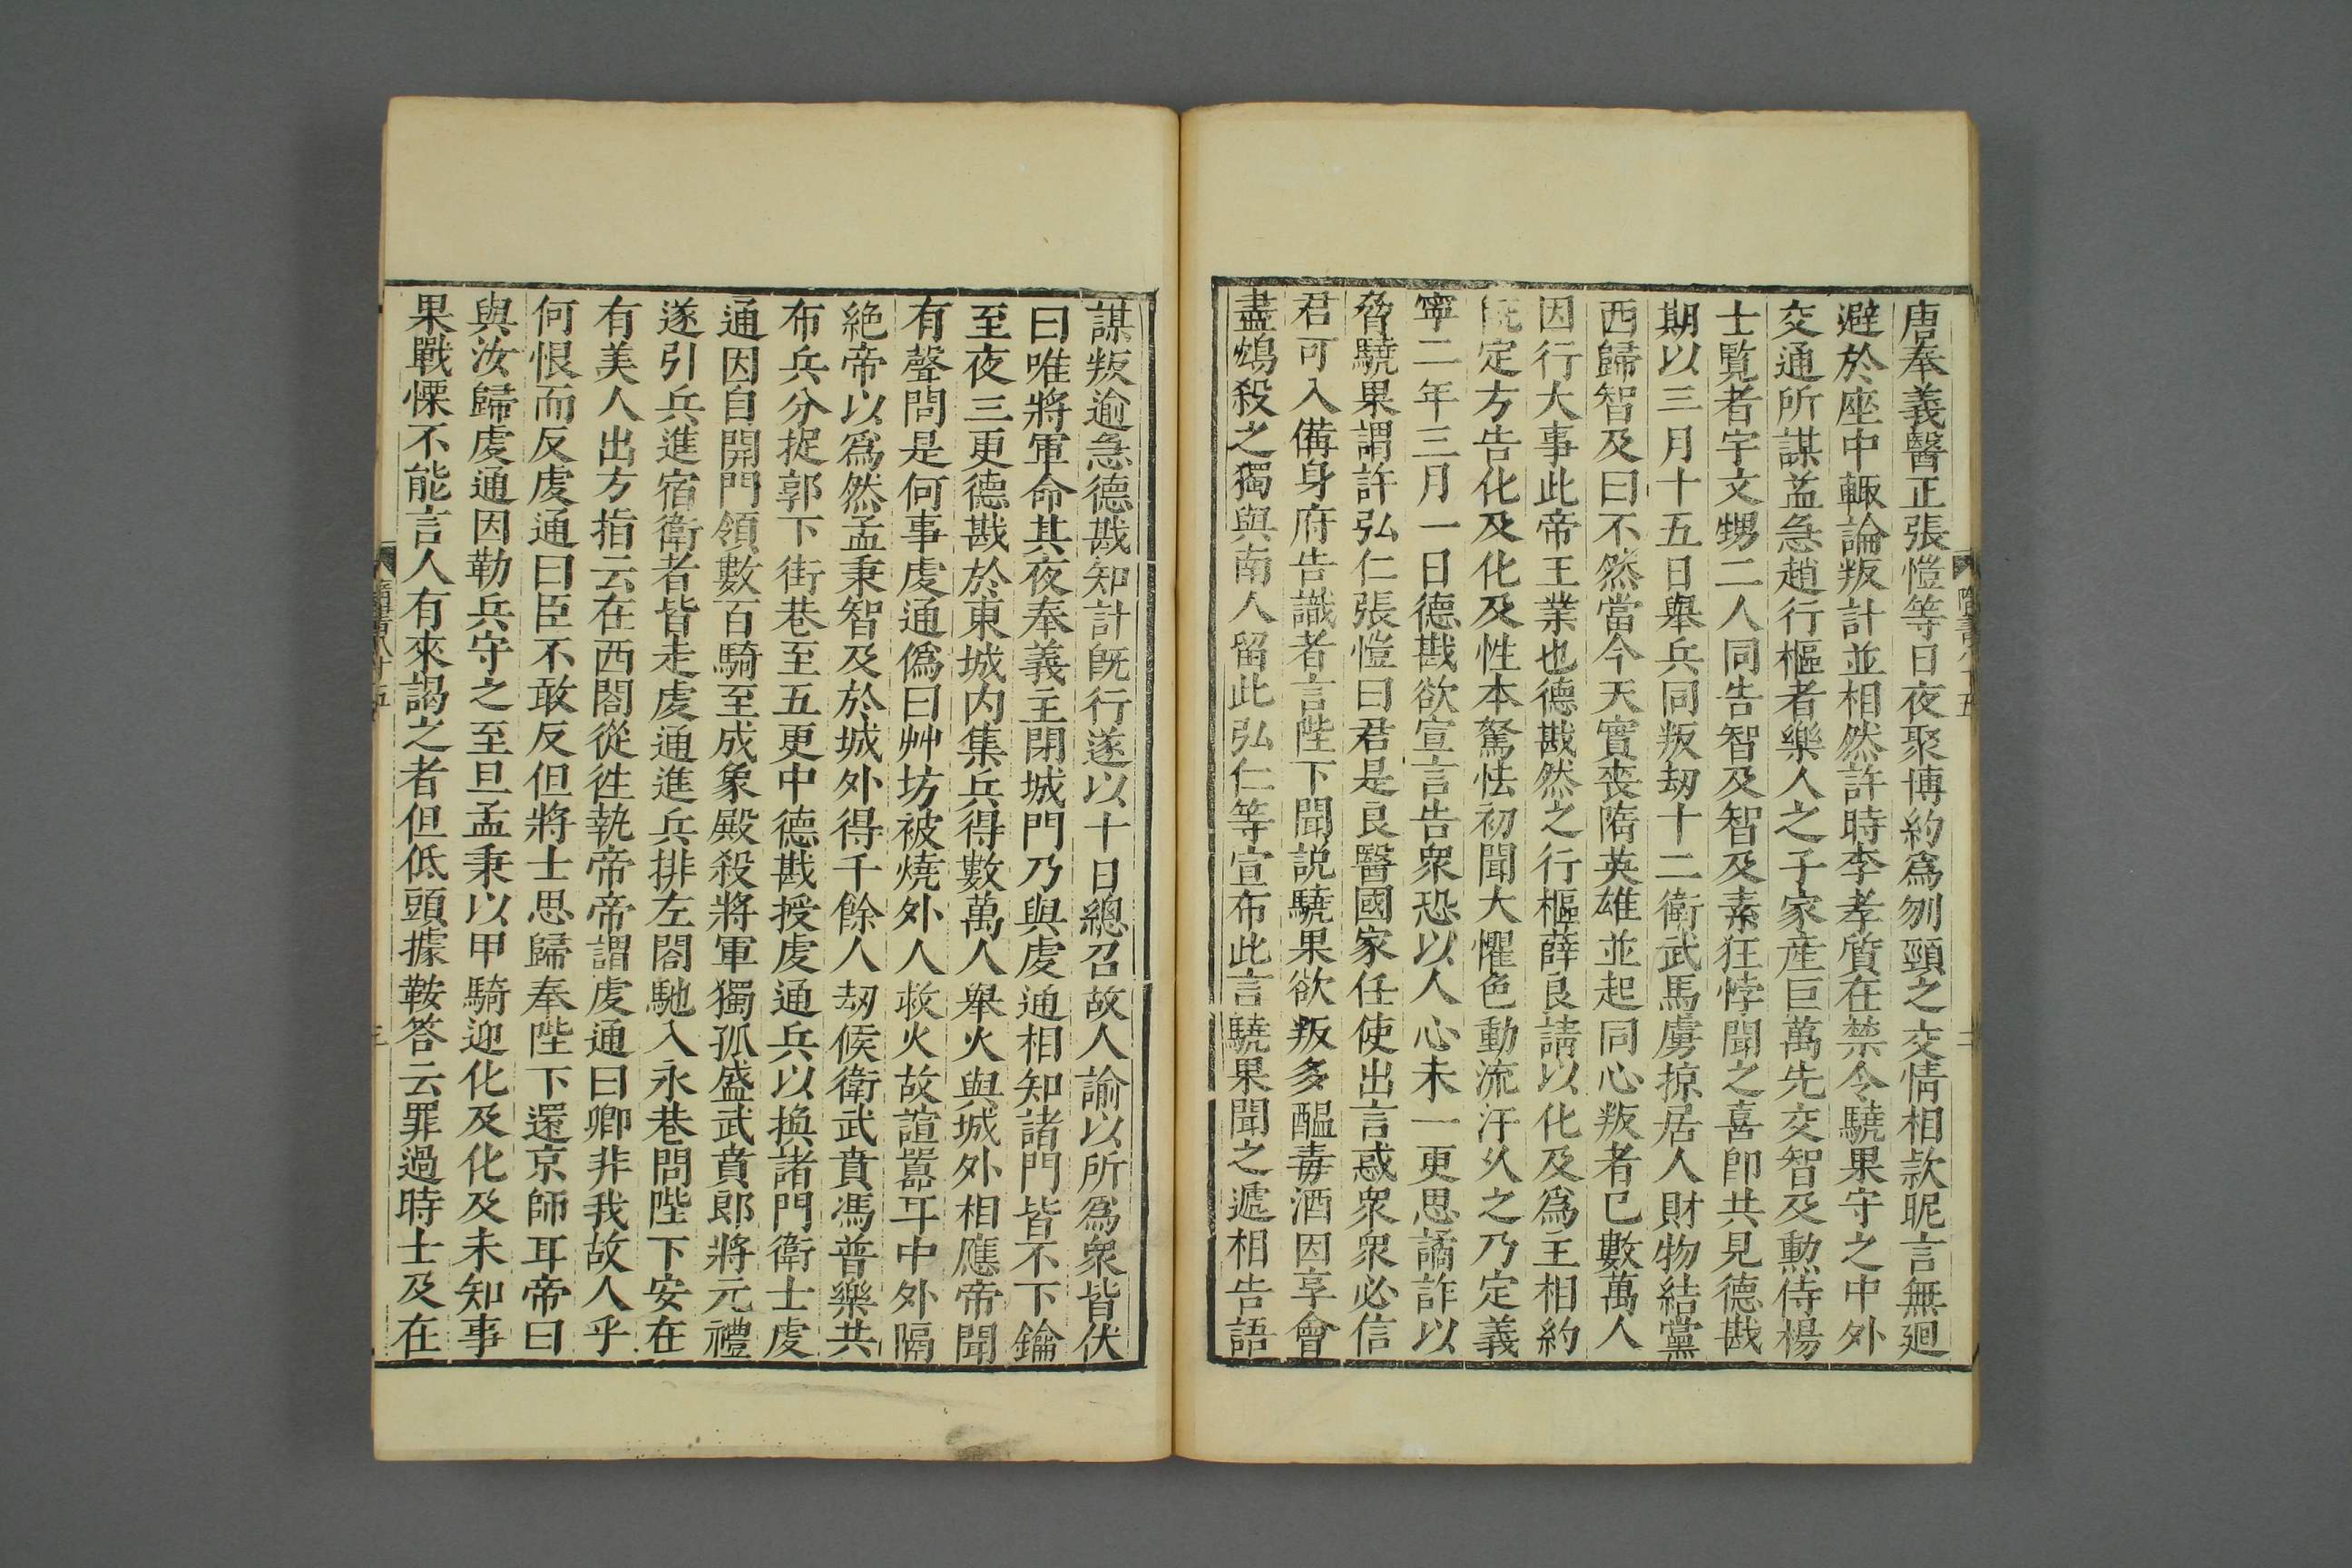 唐奉義醫正張愷等日夜聚博約爲刎頸之交情相款昵言無廻
避於座中輙論叛計並相然許時李孝質在禁令驍果守之中外
交通所謀益急趙行樞者樂人之子家産巨萬先交智及勲侍楊
士覽者宇文甥二人同告智及智及素狂悖聞之喜卽共見德戡
期以三月十五日舉兵同叛刼十二衛武馬虜掠居人財物結黨
西歸智及曰不然當今天實喪隋英雄並起同心叛者已數萬人
因行大事此帝王業也德戡然之行樞薛良請以化及爲主相約
旣定方告化及化及性本駑怯初聞大懼色動流汗乆之乃定義
寧二年三月一日德戡欲宣言告衆恐以人心未一更思譎詐以
脅驍果謂許弘仁張愷曰君是良醫國家任使出言惑衆衆必信
君可入備身府告識者言陛下聞説驍果欲叛多醖毒酒因享會
盡鴆殺之獨與南人留此弘仁等宣布此言驍果聞之遞相告語
隋書八十五
二
謀叛逾急德戡知計旣行遂以十日總召故人諭以所爲衆皆伏
曰唯將軍命其夜奉義主閉城門乃與虔通相知諸門皆不下鑰
至夜三更德戡於東城内集兵得數萬人舉火與城外相應帝聞
有聲問是何事虔通僞曰艸坊被燒外人救火故諠嚻耳中外隔
絶帝以爲然孟秉智及於城外得千餘人刼候衛武賁馮普樂共
布兵分捉郭下街巷至五更中德戡授虔通兵以換諸門衛士虔
通因自開門領數百騎至成象殿殺將軍獨孤盛武賁郎將元禮
遂引兵進宿衛者皆走虔通進兵排左閤馳入永巷問陛下安在
有美人出方指云在西閤從徃執帝帝謂虔通曰卿非我故人乎
何恨而反虔通曰臣不敢反但將士思歸奉陛下還京師耳帝曰
與汝歸虔通因勒兵守之至旦孟秉以甲騎迎化及化及未知事
果戰慄不能言人有來謁之者但低頭據鞍答云罪過時士及在
隋書八十五
三